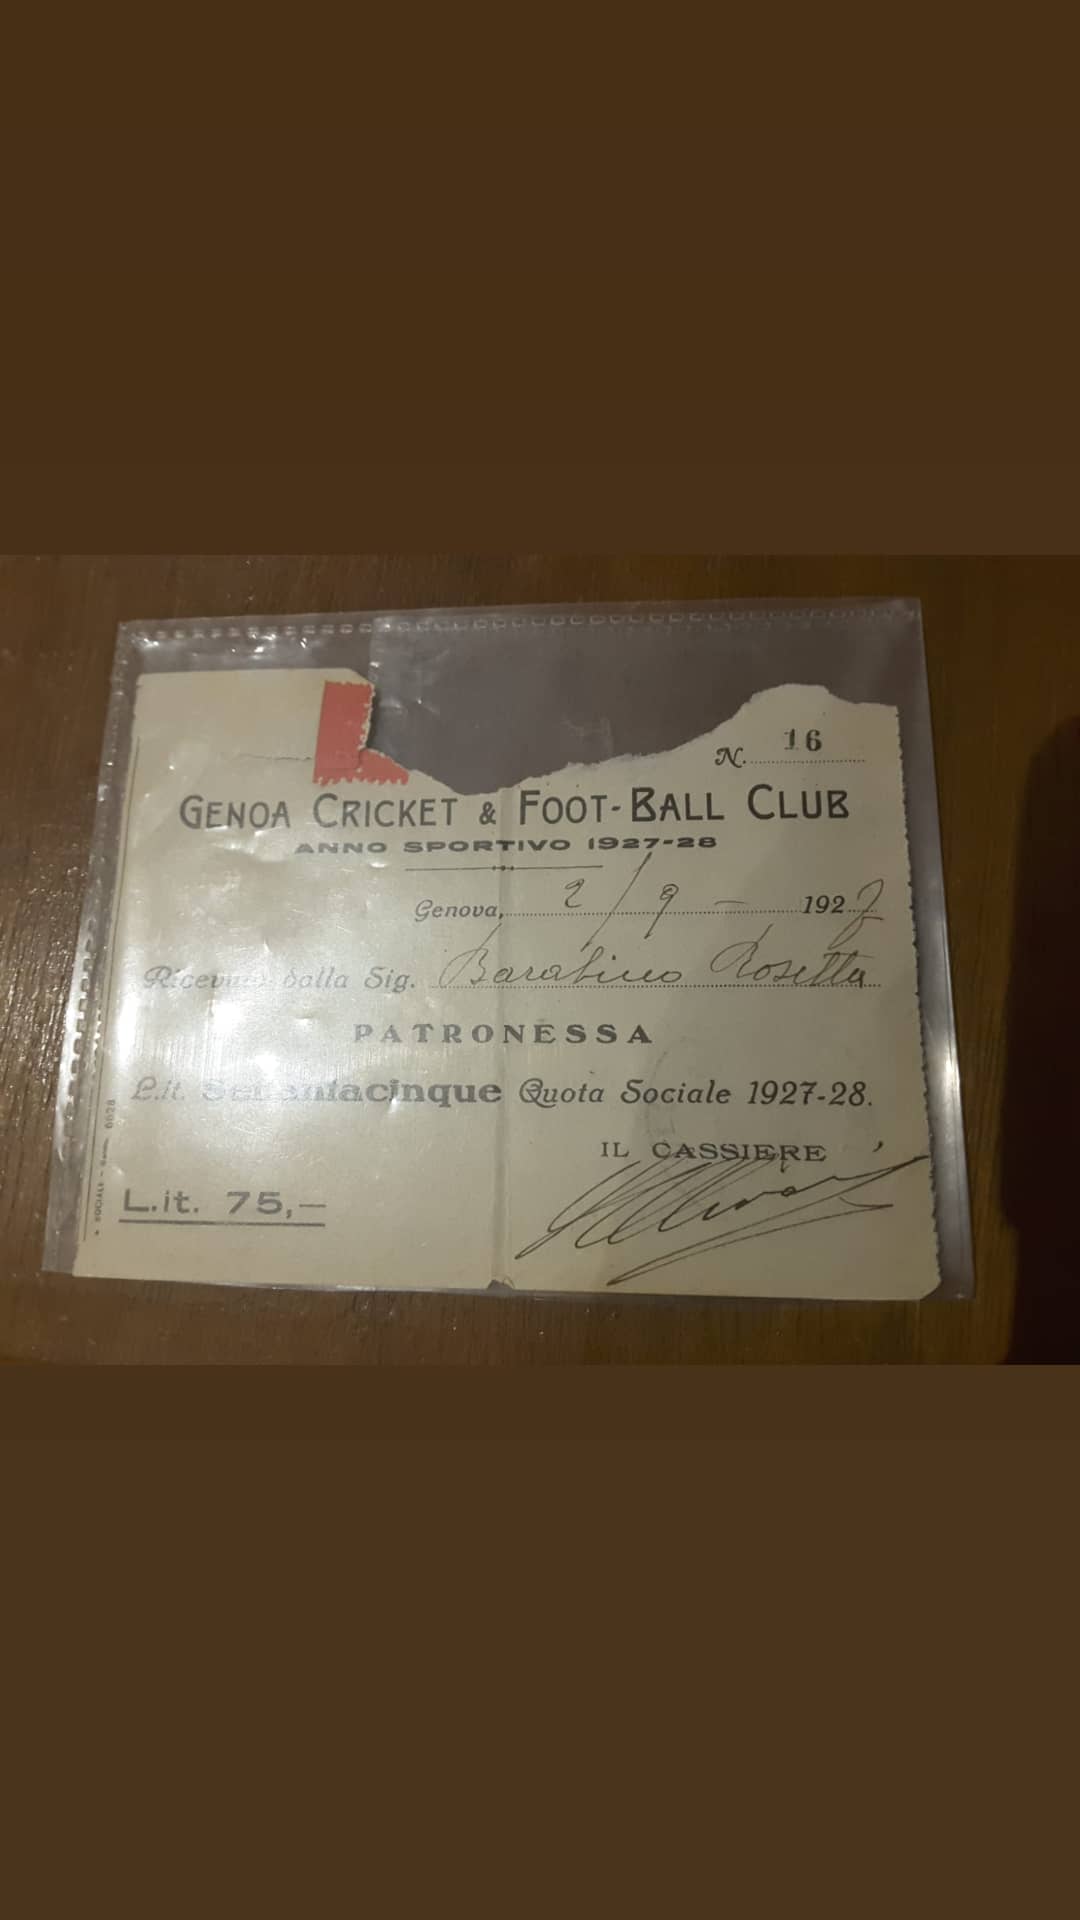 N. 16
GENOA CRICKET & FOOT-BALL CLUB
ANNO SPORTIVO 1927-28
Genova, 2/9 - 1927
dalla Sig. Barabino Rosetta
PATRONESSA
L.it. Settantacinque Quota Sociale 1927-28.
IL CASSIERE
L.it. 75,—
SOCIALE - 6628